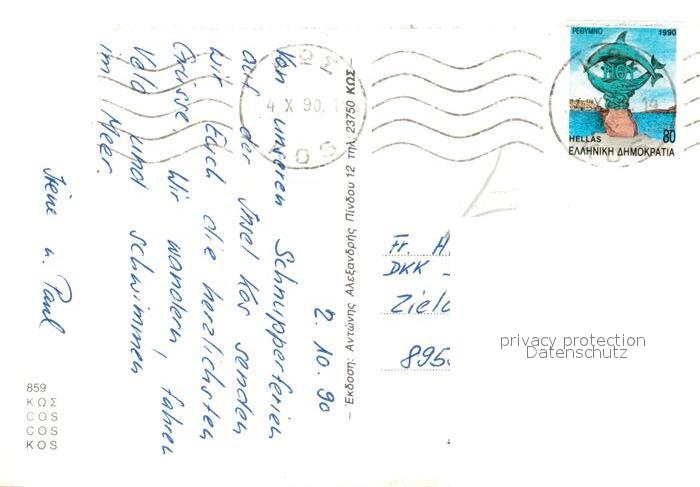 2.10.90
Von unseren Schnupperferien
auf der Insel Kos senden
wir Euch die herzlichsten
Grüsse. Wir wandern, fahren
Velo und schwimmen
im Meer.
Irène u. Paul
859
ΚΩΣ
COS
COS
KOS
– Έκδοση: Αντώνης Αλεξανδρής Πίνδου 12 τηλ. 23750 ΚΩΣ –
ΚΩΣ
4 X 90
KOS
ΡΕΘΥΜΝΟ 1990
HELLAS 80
ΕΛΛΗΝΙΚΗ ΔΗΜΟΚΡΑΤΙΑ
Fr. H
DKK
Ziel
895
privacy protection
Datenschutz